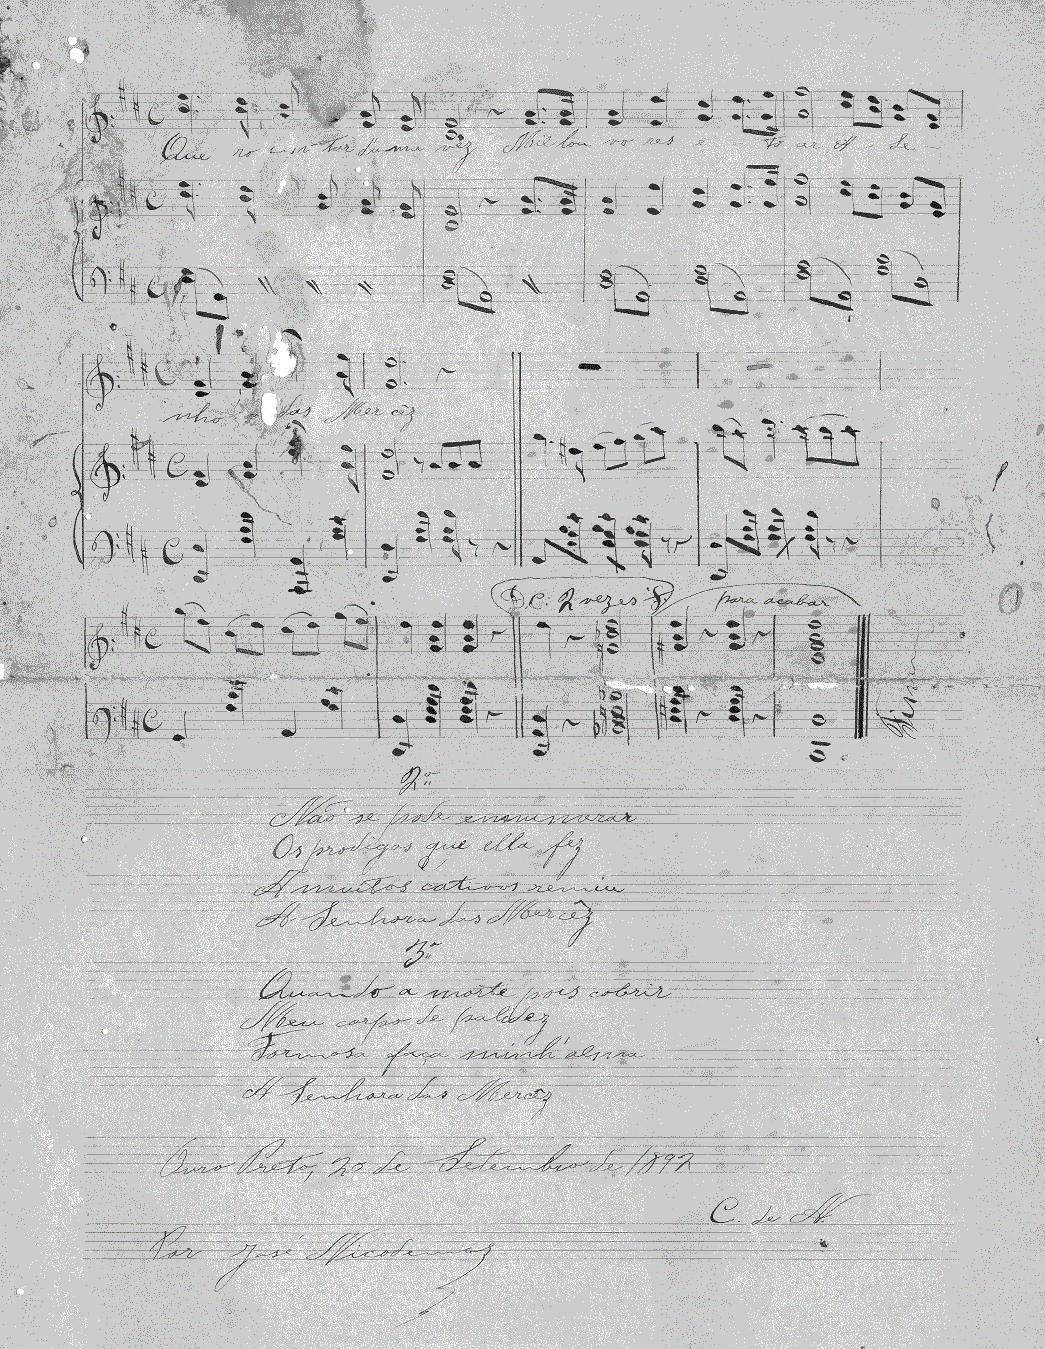 Que ro can tar du ma vez Mil lou vo res e to ar A Se
nho ra das Mer cêz
D.C. 2 vezes
para acabar
Fim
2ª
Não se pode ennumerar
Os prodigos que ella fez
A muitos cativos remiu
A Senhora das Mercêz
3ª
Quando a morte pois cobrir
Meu corpo de palidez
Formosa faça minh'alma
A Senhora das Mercêz
Ouro Preto, 20 de Setembro de 1892
C. de A.
Por José Nicodemos